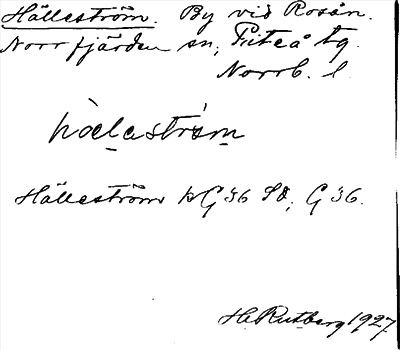 Hälleström. By vid Rosån.
Norrfjärden sn, Piteå tg.
Norrb. l.
hòelastróm
Hälleström kG 36 SO; G 36.
H. Rutberg 1927